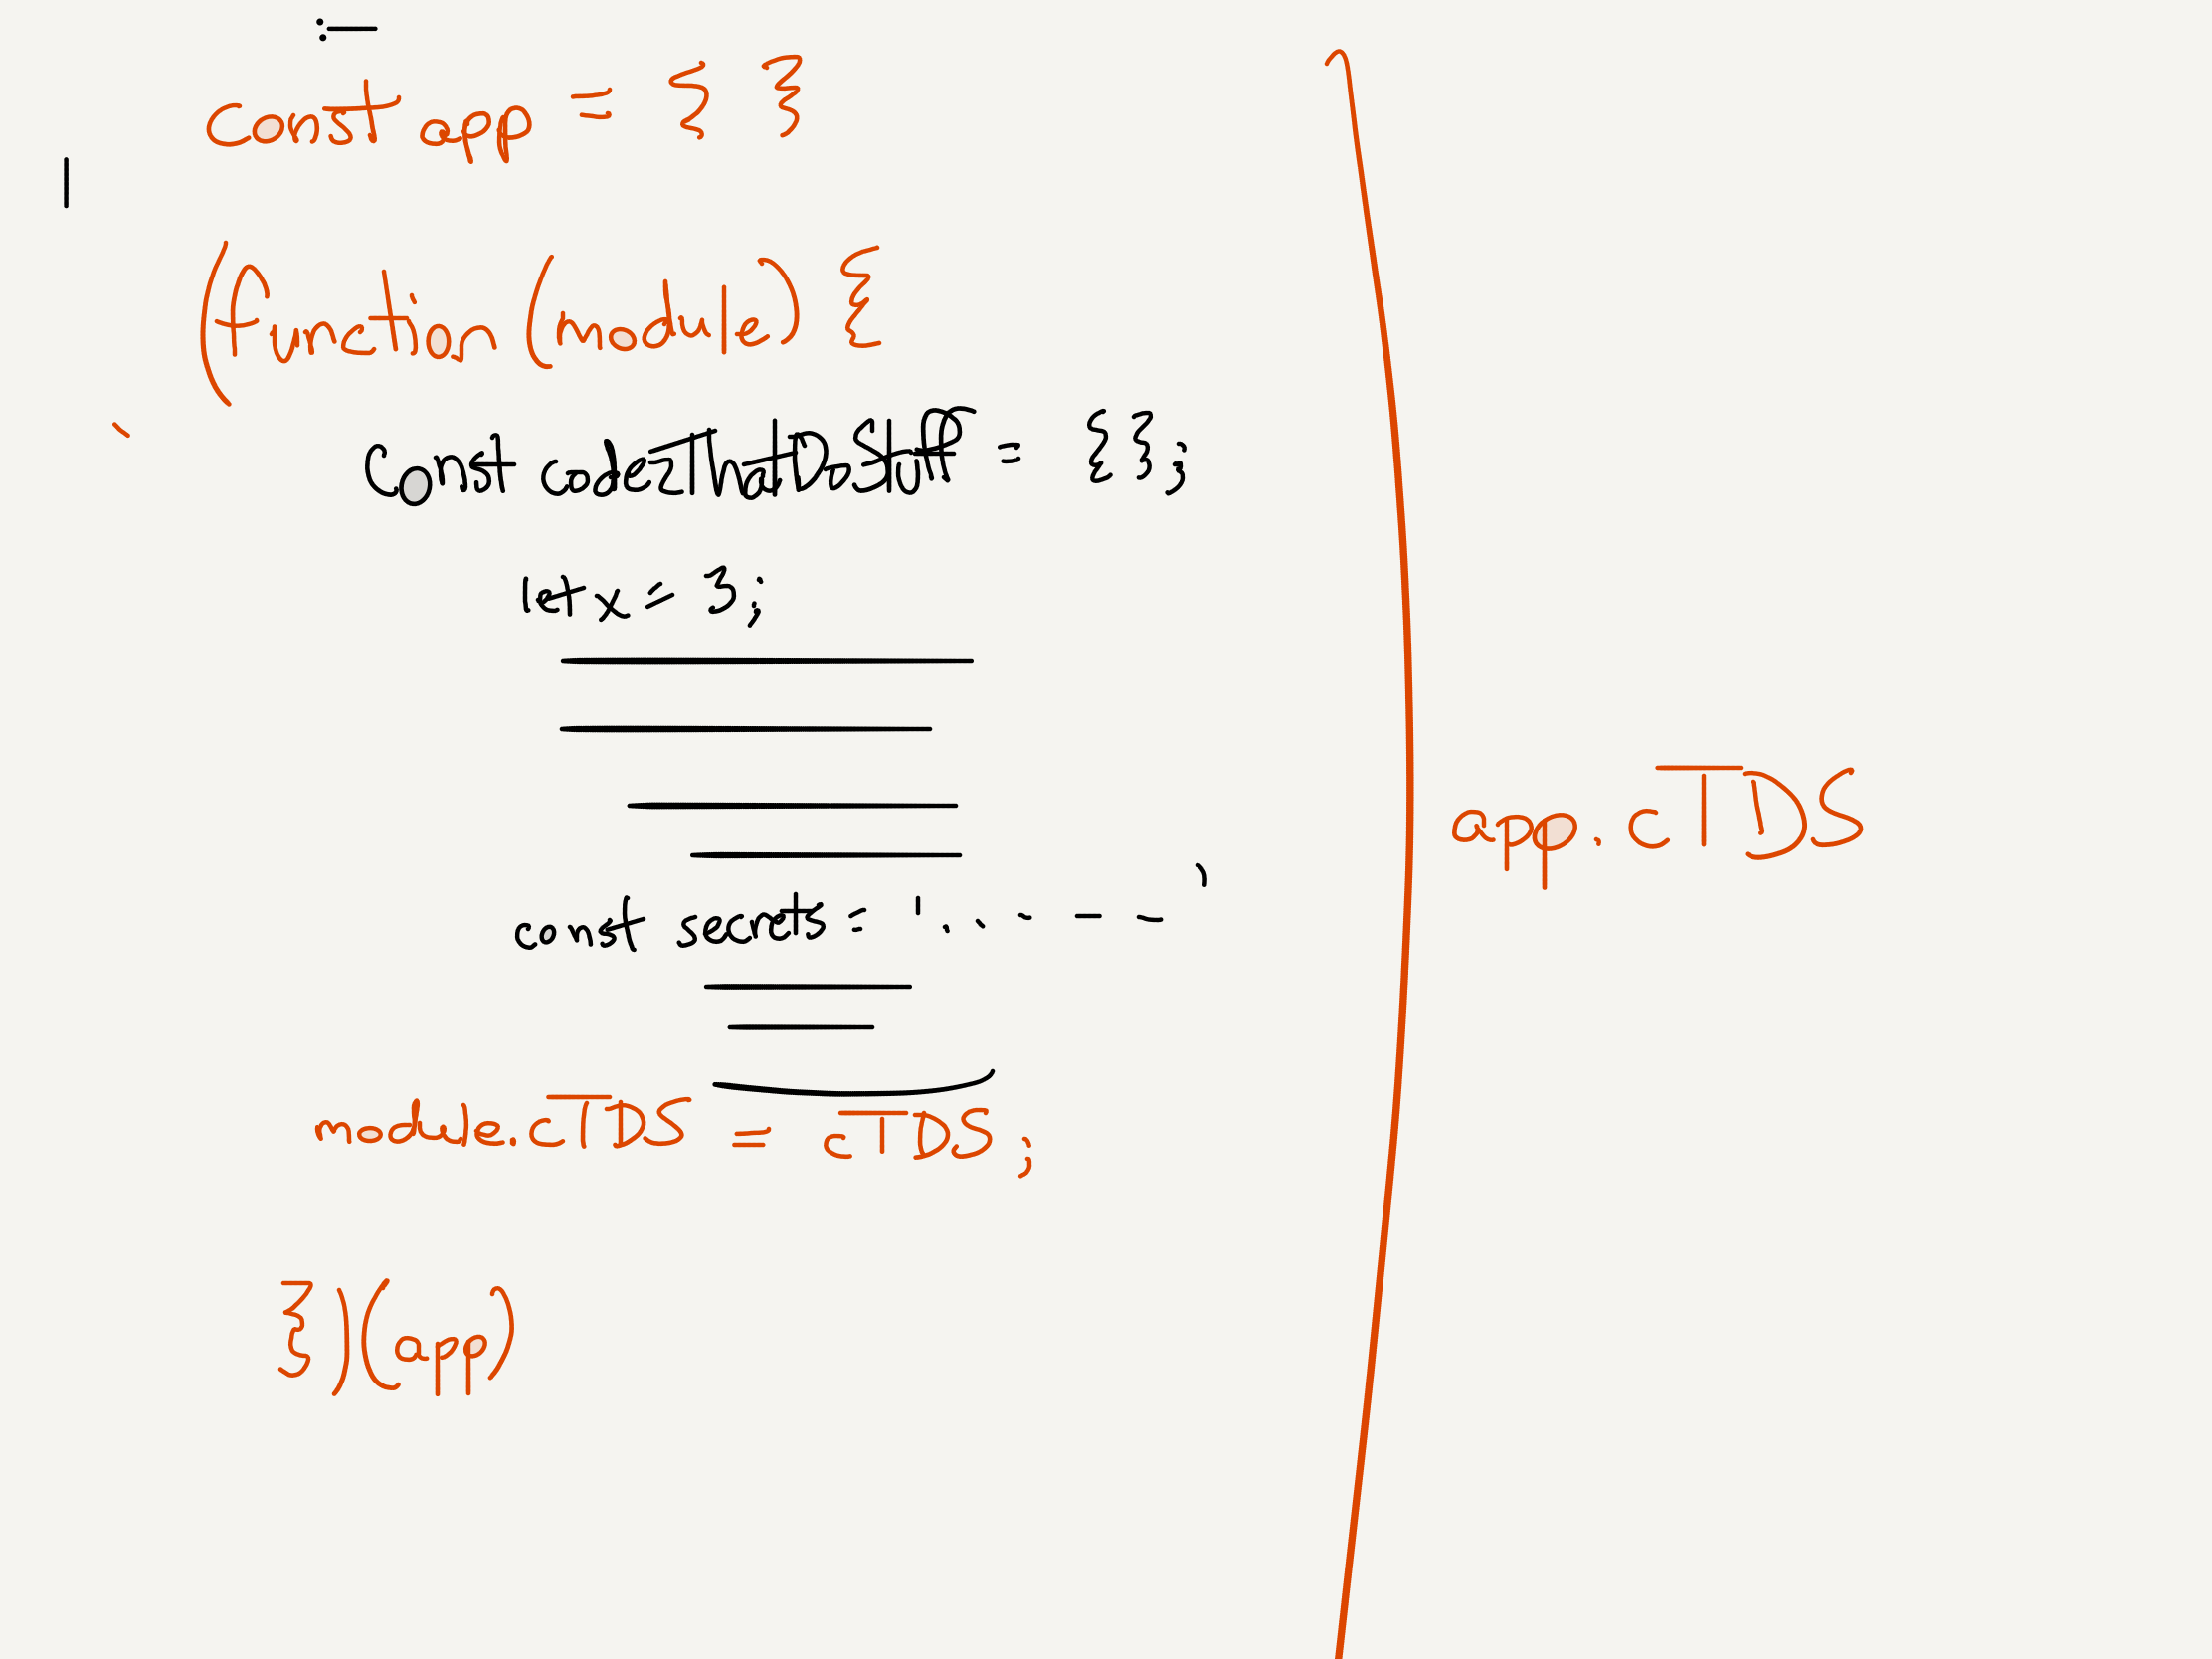 const app = { }
(function (module) {
const codeThatDoStuff = { };
let x = 3;
const secrets = '. . - - - '
module.cTDS = cTDS ;
})(app)
app.cTDS